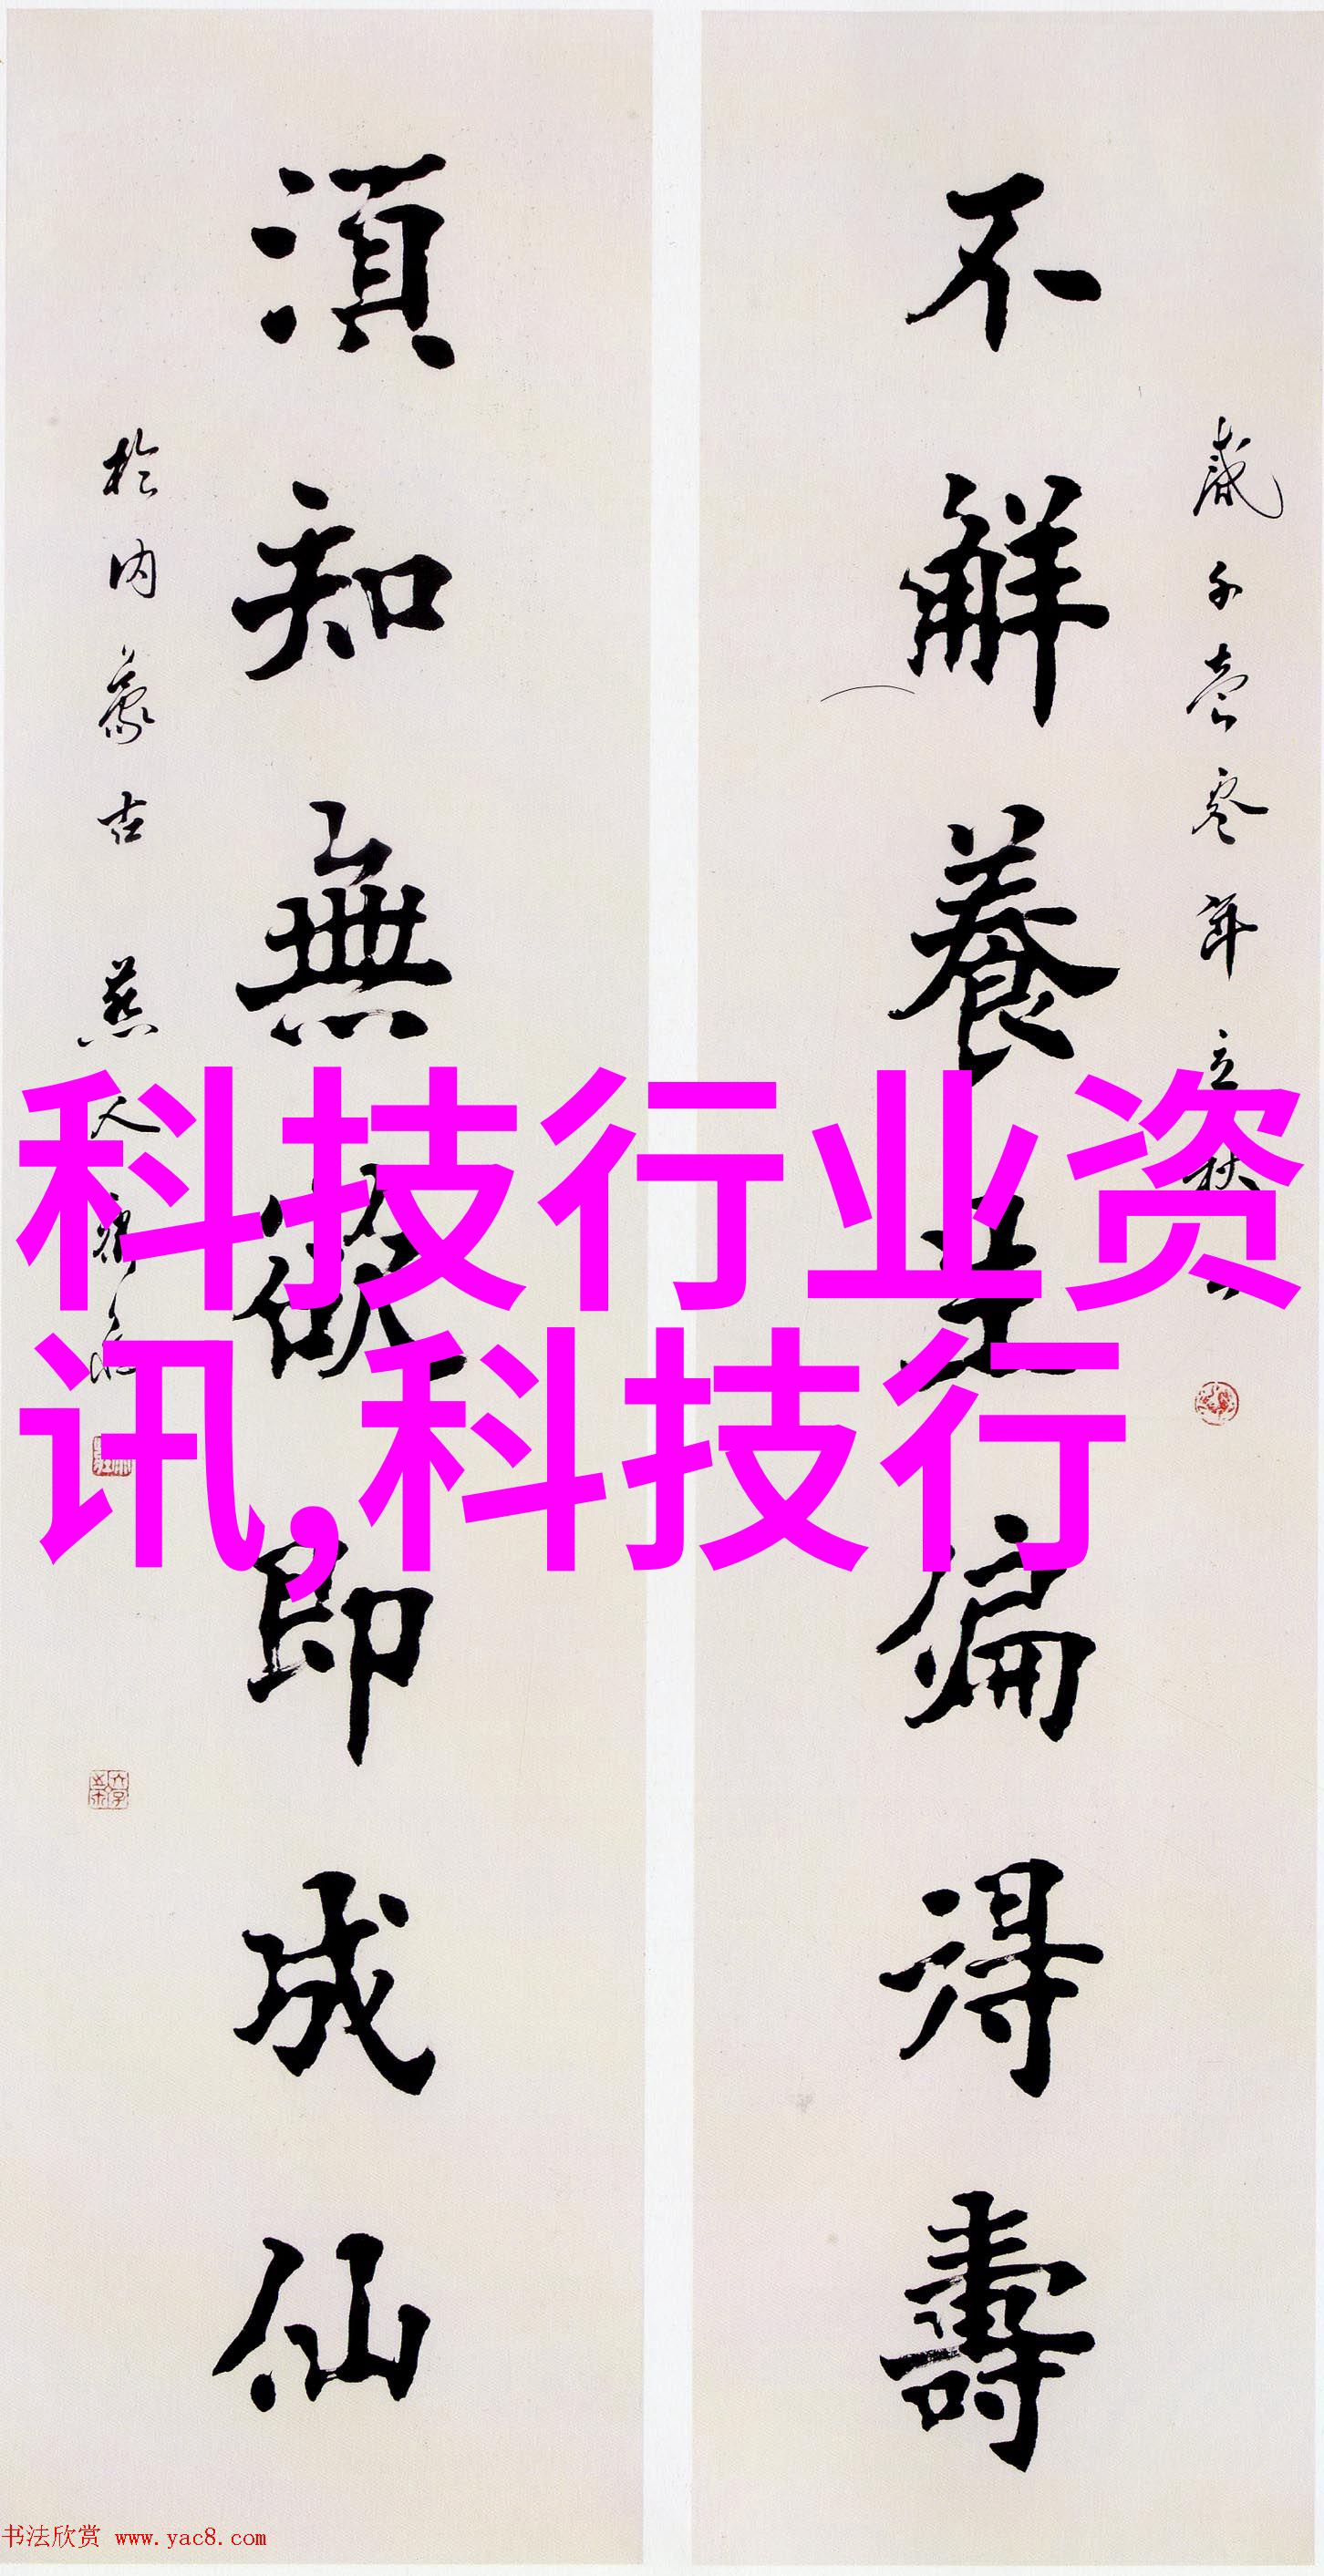 不解養生偏得壽
須知無欲即成仙
於内蒙古燕人
科技行业资
讯,科技行
书法欣赏 www.yac8.com